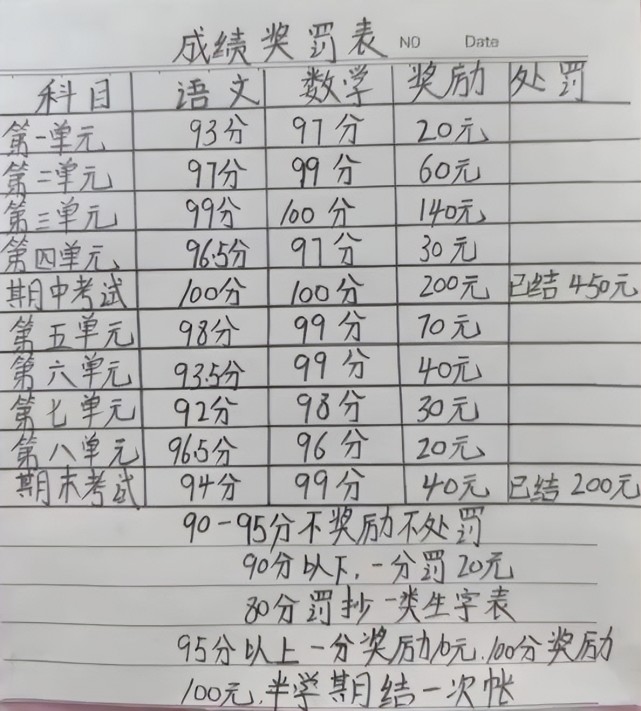 成绩奖罚表 NO Date
科目 语文 数学 奖励 处罚
第一单元 93分 97分 20元
第二单元 97分 99分 60元
第三单元 99分 100分 140元
第四单元 96.5分 97分 30元
期中考试 100分 100分 200元 已结450元
第五单元 98分 99分 70元
第六单元 93.5分 99分 40元
第七单元 92分 98分 30元
第八单元 96.5分 96分 20元
期末考试 94分 99分 40元 已结200元
90-95分不奖励不处罚
90分以下,一分罚20元
80分罚抄一类生字表
95分以上一分奖励10元.100分奖励
100元.半学期结一次帐